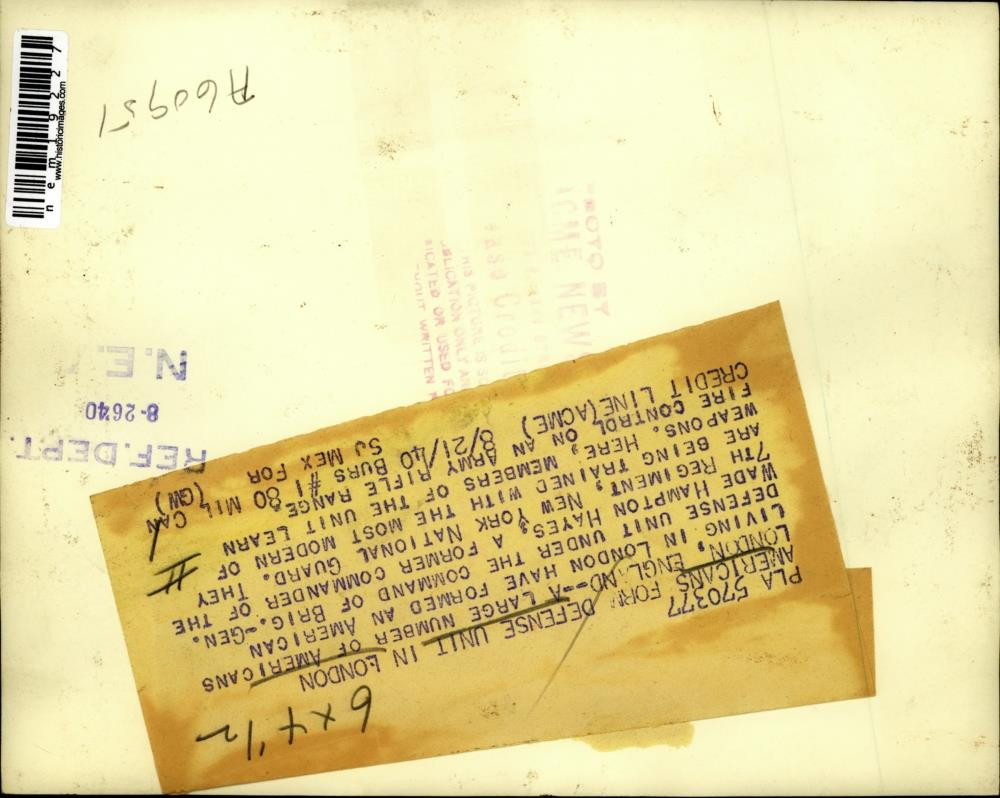 nem19227
www.historicimages.com
A60951
PHOTO BY
ACME NEW
HIS PICTURE IS
BLICATION ONLY AN
ICATED OR USED FO
WRITTEN
REF. DEPT.
8-26 40
N.E.
6 x 4 1/2
PLA 570377
AMERICANS FORM DEFENSE UNIT IN LONDON
LONDON, ENGLAND--A LARGE NUMBER OF AMERICANS
LIVING IN LONDON HAVE FORMED AN AMERICAN
DEFENSE UNIT UNDER THE COMMAND OF BRIG.-GEN.
WADE HAMPTON HAYES, A FORMER COMMANDER OF THE
7TH REGIMENT, NEW YORK NATIONAL GUARD. THEY
ARE BEING TRAINED WITH THE MOST MODERN OF
WEAPONS. HERE, MEMBERS OF THE UNIT LEARN
FIRE CONTROL ON AN ARMY RIFLE RANGE.
CREDIT LINE (ACME) 8/21/40 BURS #1 80 MIL CAN
SJ MEX FOR (GW)
II